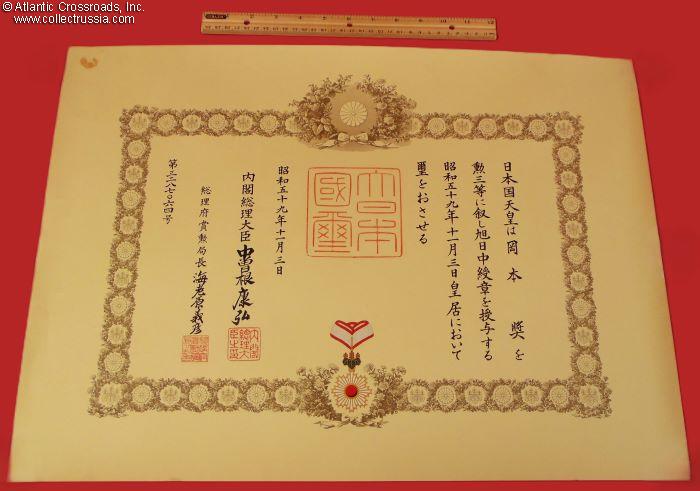 © Atlantic Crossroads, Inc.
www.collectrussia.com
日本国天皇は岡本奨を
勲三等に叙し旭日中綬章を授与する
昭和五十九年十一月三日皇居において
璽をおさせる
大日本
國璽
昭和五十九年十一月三日
内閣総理大臣 中曽根康弘
総理府賞勲局長 海老原義彦
第三二八七〇六四号